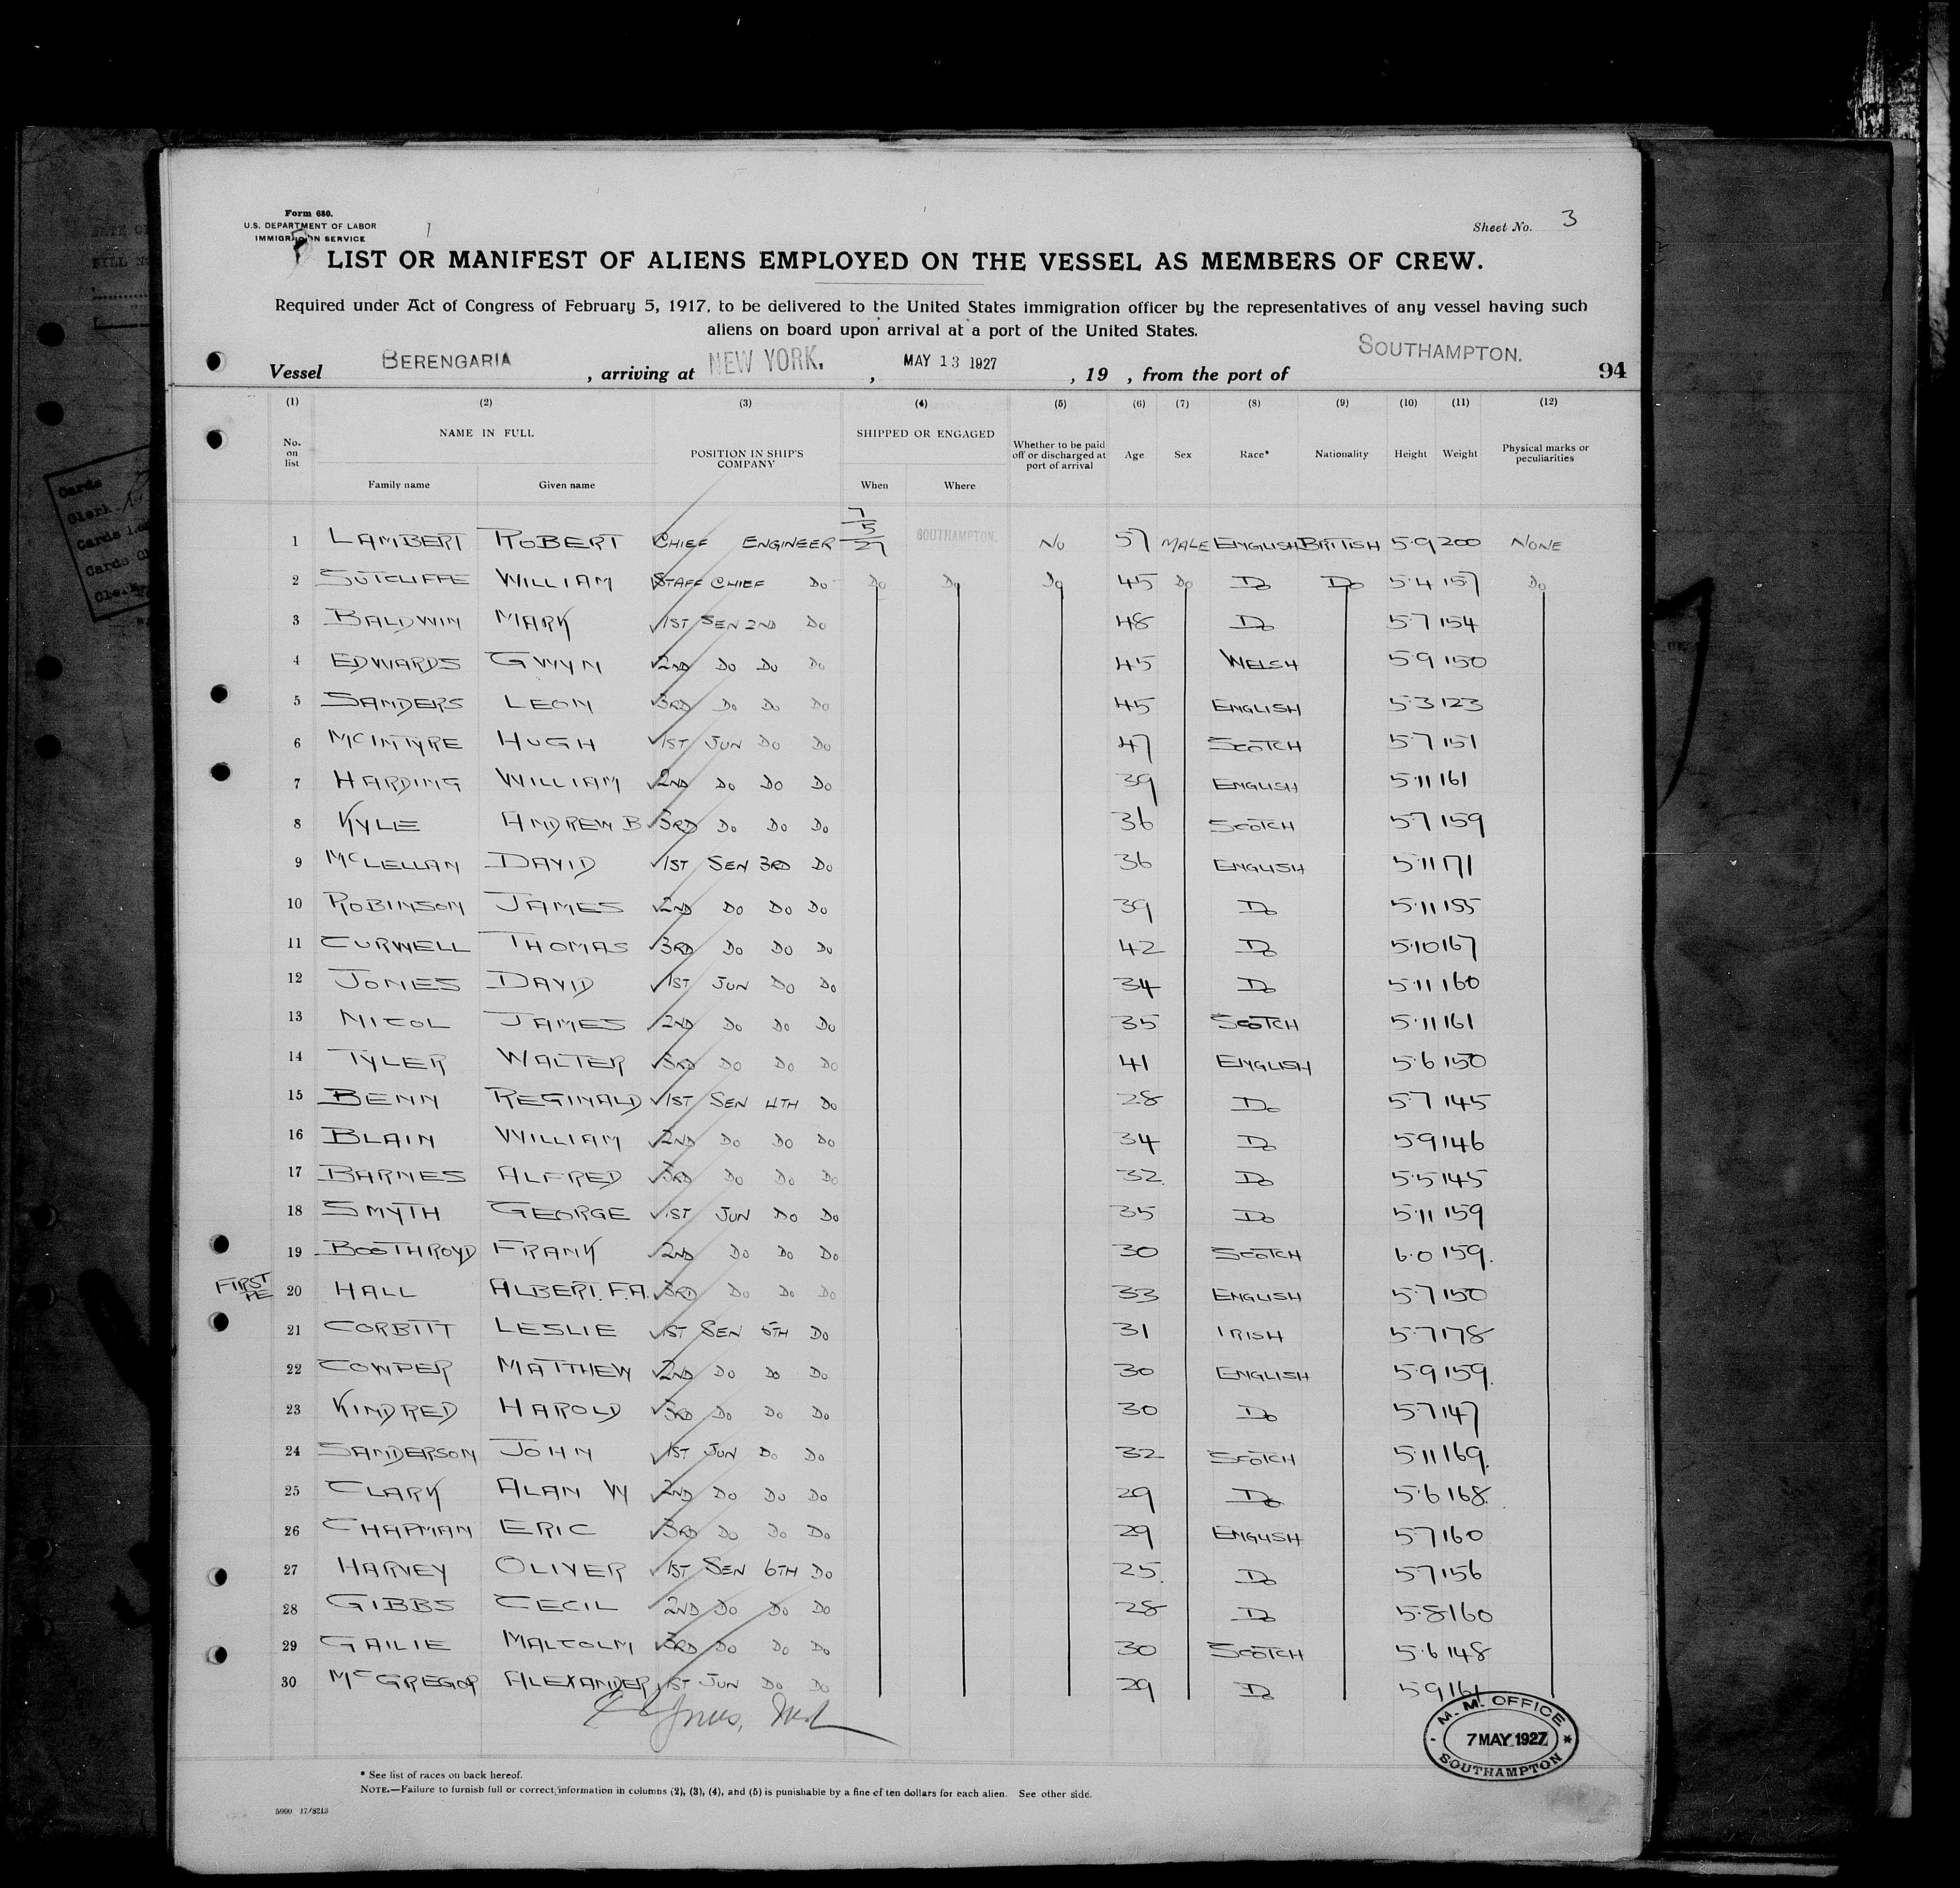 Form 680.
U.S. DEPARTMENT OF LABOR
IMMIGRATION SERVICE
Sheet No. 3
LIST OR MANIFEST OF ALIENS EMPLOYED ON THE VESSEL AS MEMBERS OF CREW.
Required under Act of Congress of February 5, 1917, to be delivered to the United States immigration officer by the representatives of any vessel having such
aliens on board upon arrival at a port of the United States.
Vessel BERENGARIA , arriving at NEW YORK. , MAY 13 1927 , 19 , from the port of SOUTHAMPTON. 94
(1) (2) (3) (4) (5) (6) (7) (8) (9) (10) (11) (12)
No. on list NAME IN FULL POSITION IN SHIP'S COMPANY SHIPPED OR ENGAGED Whether to be paid off or discharged at port of arrival Age Sex Race* Nationality Height Weight Physical marks or peculiarities
Family name Given name When Where
1 LAMBERT ROBERT CHIEF ENGINEER 7/5/27 SOUTHAMPTON. NO 57 MALE ENGLISH BRITISH 5·9 200 NONE
2 SUTCLIFFE WILLIAM STAFF CHIEF DO DO DO DO 45 DO DO DO 5·4 157 DO
3 BALDWIN MARK 1ST SEN 2ND DO 48 DO 5·7 154
4 EDWARDS GWYN 2ND DO DO DO 45 WELSH 5·9 150
5 SANDERS LEON 3RD DO DO DO 45 ENGLISH 5·3 123
6 MCINTYRE HUGH 1ST JUN DO DO 47 SCOTCH 5·7 151
7 HARDING WILLIAM 2ND DO DO DO 39 ENGLISH 5·11 161
8 KYLE ANDREW B 3RD DO DO DO 36 SCOTCH 5·7 159
9 MCLELLAN DAVID 1ST SEN 3RD DO 36 ENGLISH 5·11 171
10 ROBINSON JAMES 2ND DO DO DO 39 DO 5·11 155
11 CURWELL THOMAS 3RD DO DO DO 42 DO 5·10 167
12 JONES DAVID 1ST JUN DO DO 34 DO 5·11 160
13 NICOL JAMES 2ND DO DO DO 35 SCOTCH 5·11 161
14 TYLER WALTER 3RD DO DO DO 41 ENGLISH 5·6 150
15 BENN REGINALD 1ST SEN 4TH DO 28 DO 5·7 145
16 BLAIN WILLIAM 2ND DO DO DO 34 DO 5·9 146
17 BARNES ALFRED 3RD DO DO DO 32 DO 5·5 145
18 SMYTH GEORGE 1ST JUN DO DO 35 DO 5·11 159
19 BOOTHROYD FRANK 2ND DO DO DO 30 SCOTCH 6·0 159.
FIRST
20 HALL ALBERT. F.A. 3RD DO DO DO 33 ENGLISH 5·7 150
21 CORBITT LESLIE 1ST SEN 5TH DO 31 IRISH 5·7 178
22 COWPER MATTHEW 2ND DO DO DO 30 ENGLISH 5·9 159.
23 KINDRED HAROLD 3RD DO DO DO 30 DO 5·7 147
24 SANDERSON JOHN 1ST JUN DO DO 32 SCOTCH 5·11 169.
25 CLARK ALAN W 2ND DO DO DO 29 DO 5·6 168.
26 CHAPMAN ERIC 3RD DO DO DO 29 ENGLISH 5·7 160
27 HARVEY OLIVER 1ST SEN 6TH DO 25. DO 5·7 156
28 GIBBS CECIL 2ND DO DO DO 28 DO 5·8 160
29 GAILIE MALCOLM 3RD DO DO DO 30 SCOTCH 5·6 148
30 MCGREGOR ALEXANDER 1ST JUN DO DO 29 DO 5·9 161
M. M. OFFICE
7 MAY 1927
SOUTHAMPTON
* See list of races on back hereof.
NOTE.—Failure to furnish full or correct information in columns (2), (3), (4), and (5) is punishable by a fine of ten dollars for each alien. See other side.
5000 17/8213